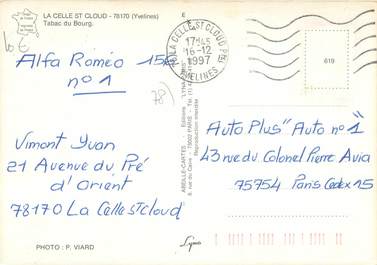 LA CELLE ST CLOUD - 78170 (Yvelines)
Tabac du Bourg.
10 €
Alfa Roméo
n° 1
78)
Vimont Yvan
21 Avenue du Pré
d'Orient
78170 La Celle st cloud
PHOTO : P. VIARD
E
ABEILLE-CARTES - Editions
75002 PARIS
Reproduction interdite
Lyna
LA CELLE ST CLOUD PPAL
17H45
16-12
1997
YVELINES
619
Auto Plus "Auto n° 1"
43 rue du Colonel Pierre Avia
75754 Paris Cedex 15